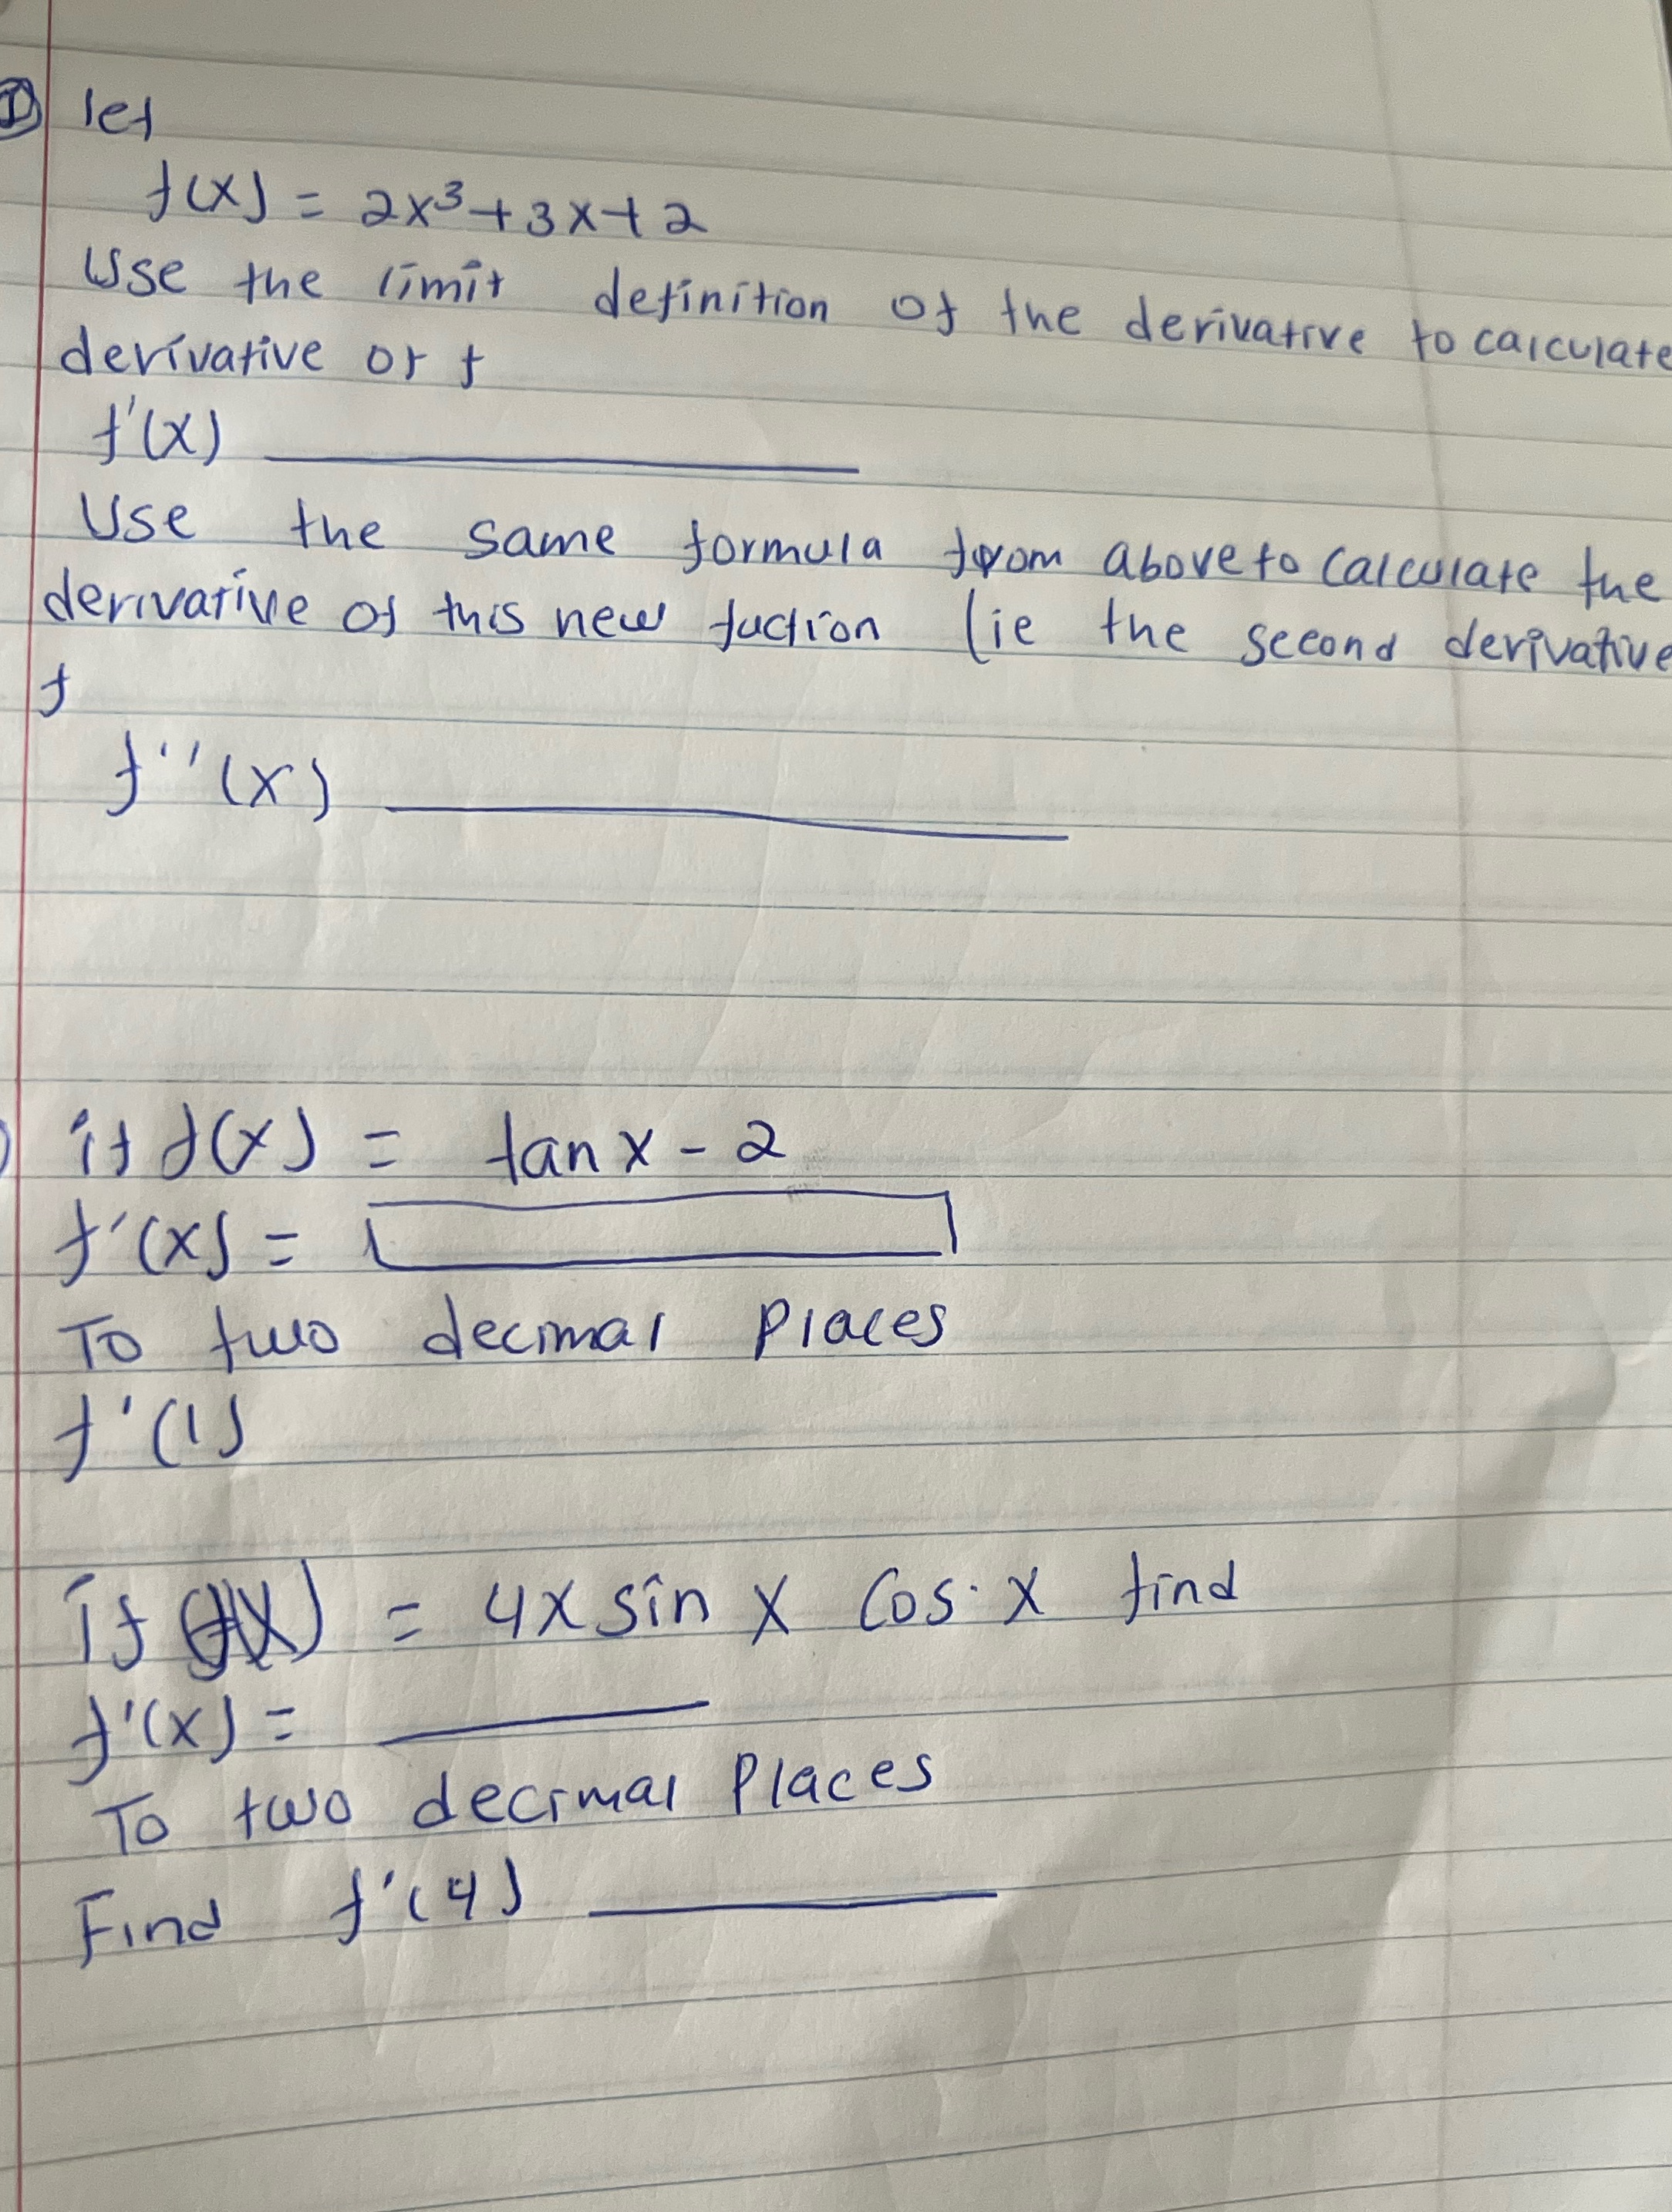 ① let
f(x) = 2x³+3x+2
Use the limit definition of the derivative to calculate
derivative of f
f'(x) ____________
Use the same formula from above to calculate the
derivative of this new fuction (ie the second derivative
f
f''(x) ____________
if f(x) = tan x - 2
f'(x) =
To two decimal places
f'(1)
if f(x) = 4x sin x cos x find
f'(x) = ________
To two decimal places
Find f'(4) ________